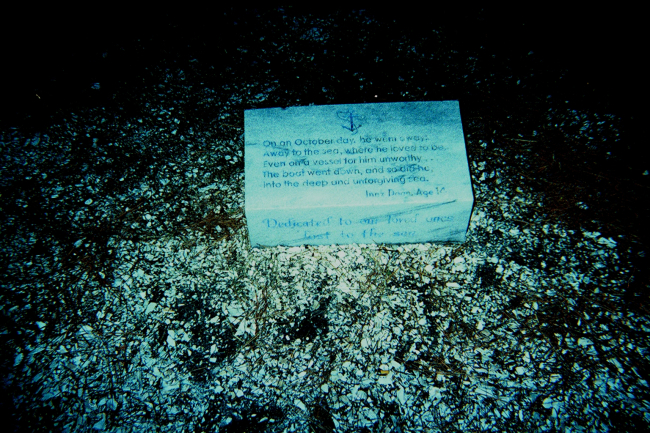 On an October day, he went away:
Away to the sea, where he loved to be.
Even on a vessel for him unworthy...
The boat went down, and so did he,
Into the deep and unforgiving sea.
Age
Dedicated to our loved ones
lost to the sea